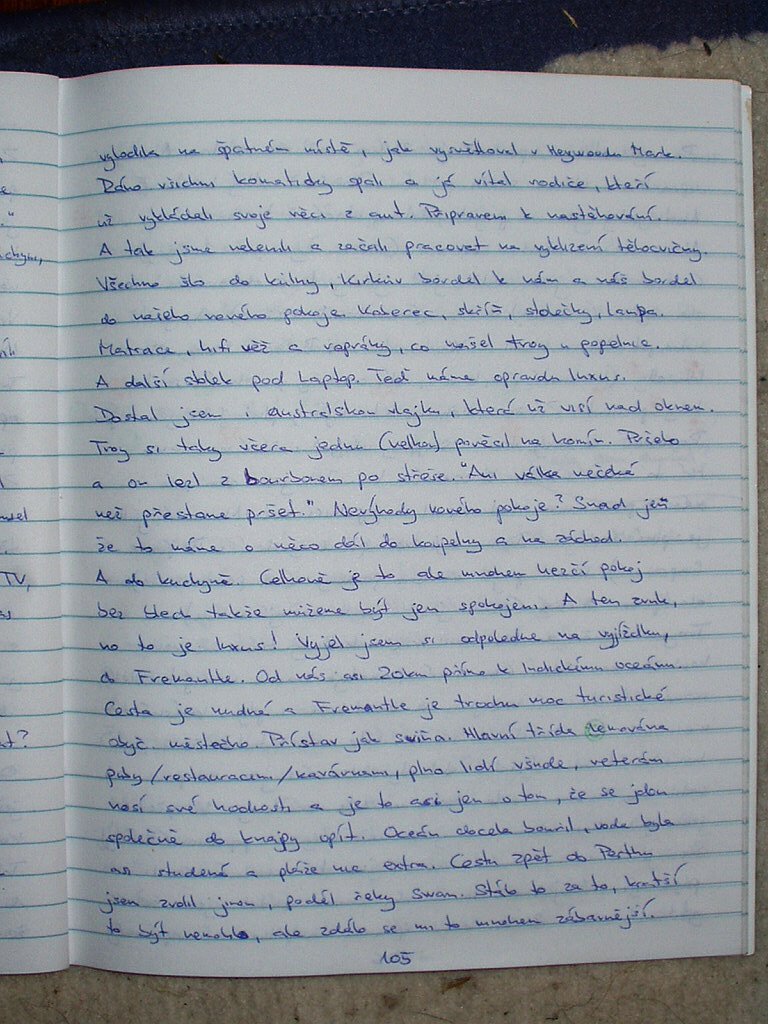 vyložila na špatném místě, jak vysvětloval v Heywoodu Mark.
Ráno všichni komatidky spali a já vítal rodiče, kteří
už vykládali svoje věci z aut. Připraveni k nastěhování.
A tak jsme nelenili a začali pracovat na vyklizení tělocvičny.
Všechno šlo do kůlny, Kirkův bordel k nám a náš bordel
do našeho nového pokoje. Koberec, skříň, stolečky, lampa.
Matrace, hifi věž a repráky, co našel Troy u popelnic.
A další stolek pod laptop. Teď máme opravdu luxus.
Dostal jsem i australskou vlajku, která už visí nad oknem.
Troy si taky včera jednu (velkou) pověsil na komín. Pršelo
a on lezl z bourbonem po střeše. "Ani válka nečeká
než přestane pršet." Nevýhody nového pokoje? Snad jen
že to máme o něco dál do koupelny a na záchod.
A do kuchyně. Celkově je to ale mnohem hezčí pokoj
bez blech takže můžeme být jen spokojeni. A ten zvuk,
no to je luxus! Vyjel jsem si odpoledne na vyjížďku,
do Fremantle. Od nás asi 20km přímo k Indickému oceánu.
Cesta je nudná a Fremantle je trochu moc turistické
obyč. městečko. Přístav jak sviňa. Hlavní třída lemována
puby/restauracemi/kavárnami, plno lidí všude, veteráni
nosí své hodnosti a je to asi jen o tom, že se jdou
společně do knajpy opít. Oceán docela bouřil, voda byla
asi studená a pláže nic extra. Cestu zpět do Perthu
jsem zvolil jinou, podél řeky Swan. Stálo to za to, kratší
to být nemohlo, ale zdálo se mi to mnohem zábavnější.
105